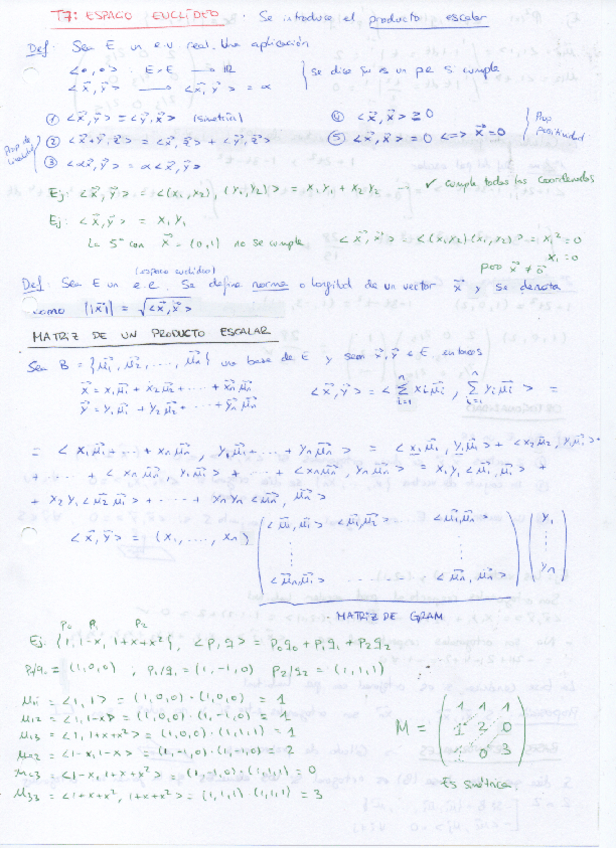 T7: ESPACO EUCLÍDEO · Se introduce el producto escalar
Def: Sea E un e.v. real. Una aplicación
< , > : E×E → ℝ
<x⃗, y⃗> → <x⃗, y⃗> = α
se dice que es un p.e si cumple
① <x⃗,y⃗> = <y⃗,x⃗> (simetría)
④ <x⃗,x⃗> ≥ 0
② <x⃗+y⃗,z⃗> = <x⃗,z⃗> + <y⃗,z⃗>
⑤ <x⃗,x⃗> = 0 <=> x⃗=0
Prop positividad
Prop de
③ <αx⃗,y⃗> = α<x⃗,y⃗>
Ej: <x⃗,y⃗> = <(x₁,x₂), (y₁,y₂)> = x₁y₁ + x₂y₂ → ✓ cumple todas las
Ej: <x⃗,y⃗> = x₁y₁
La 5ª con x⃗ = (0,1) no se cumple <x⃗,x⃗> = <(x₁,x₂)(x₁,x₂)> = x₁² = 0
x₁ = 0
pero x⃗ ≠ 0⃗
(espacio euclídeo)
Def: Sea E un e.e. Se define norma o longitud de un vector x⃗ y se denota
como ||x⃗|| = √<x⃗,x⃗>
MATRIZ DE UN PRODUCTO ESCALAR
Sea B = {u⃗₁, u⃗₂, ..., u⃗ₙ} una base de E y sean x⃗,y⃗ ∈ E, entonces
x⃗ = x₁u⃗₁ + x₂u⃗₂ + ... + xₙu⃗ₙ
y⃗ = y₁u⃗₁ + y₂u⃗₂ + ... + yₙu⃗ₙ
<x⃗,y⃗> = < Σⁿᵢ₌₁ xᵢu⃗ᵢ , Σⁿᵢ₌₁ yᵢu⃗ᵢ > =
= < x₁u⃗₁ + ... + xₙu⃗ₙ, y₁u⃗₁ + ... + yₙu⃗ₙ > = < x₁u⃗₁, y₁u⃗₁ > + < x₂u⃗₂, y₁u⃗₁ >
+ ... + < xₙu⃗ₙ, y₁u⃗₁ > + ... + < xₙu⃗ₙ, yₙu⃗ₙ > = x₁y₁<u⃗₁,u⃗₁> +
+ x₂y₁<u⃗₂,u⃗₁> + ... + xₙyₙ<u⃗ₙ,u⃗ₙ>
<u⃗₁,u⃗₁> <u⃗₁,u⃗₂> <u⃗₁,u⃗ₙ> y₁
<x⃗,y⃗> = (x₁, ..., xₙ)
<u⃗ₙ,u⃗₁> ... <u⃗ₙ,u⃗ₙ> yₙ
MATRIZ DE GRAM
P₀ P₁ P₂
Ej: {1, 1-x, 1+x+x²}, <p,q> = p₀q₀ + p₁q₁ + p₂q₂
P₀/q₀ = (1,0,0) ; P₁/q₁ = (1,-1,0) P₂/q₂ = (1,1,1)
μ₁₁ = <1,1> = (1,0,0)·(1,0,0) = 1
μ₁₂ = <1,1-x> = (1,0,0)·(1,-1,0) = 1
μ₁₃ = <1,1+x+x²> = (1,0,0)·(1,1,1) = 1
μ₂₂ = <1-x,1-x> = (1,-1,0)·(1,-1,0) = 2
μ₂₃ = <1-x,1+x+x²> = (1,-1,0)·(1,1,1) = 0
μ₃₃ = <1+x+x²,1+x+x²> = (1,1,1)·(1,1,1) = 3
1 1 1
M = 1 2 0
1 0 3
Es simétrica.